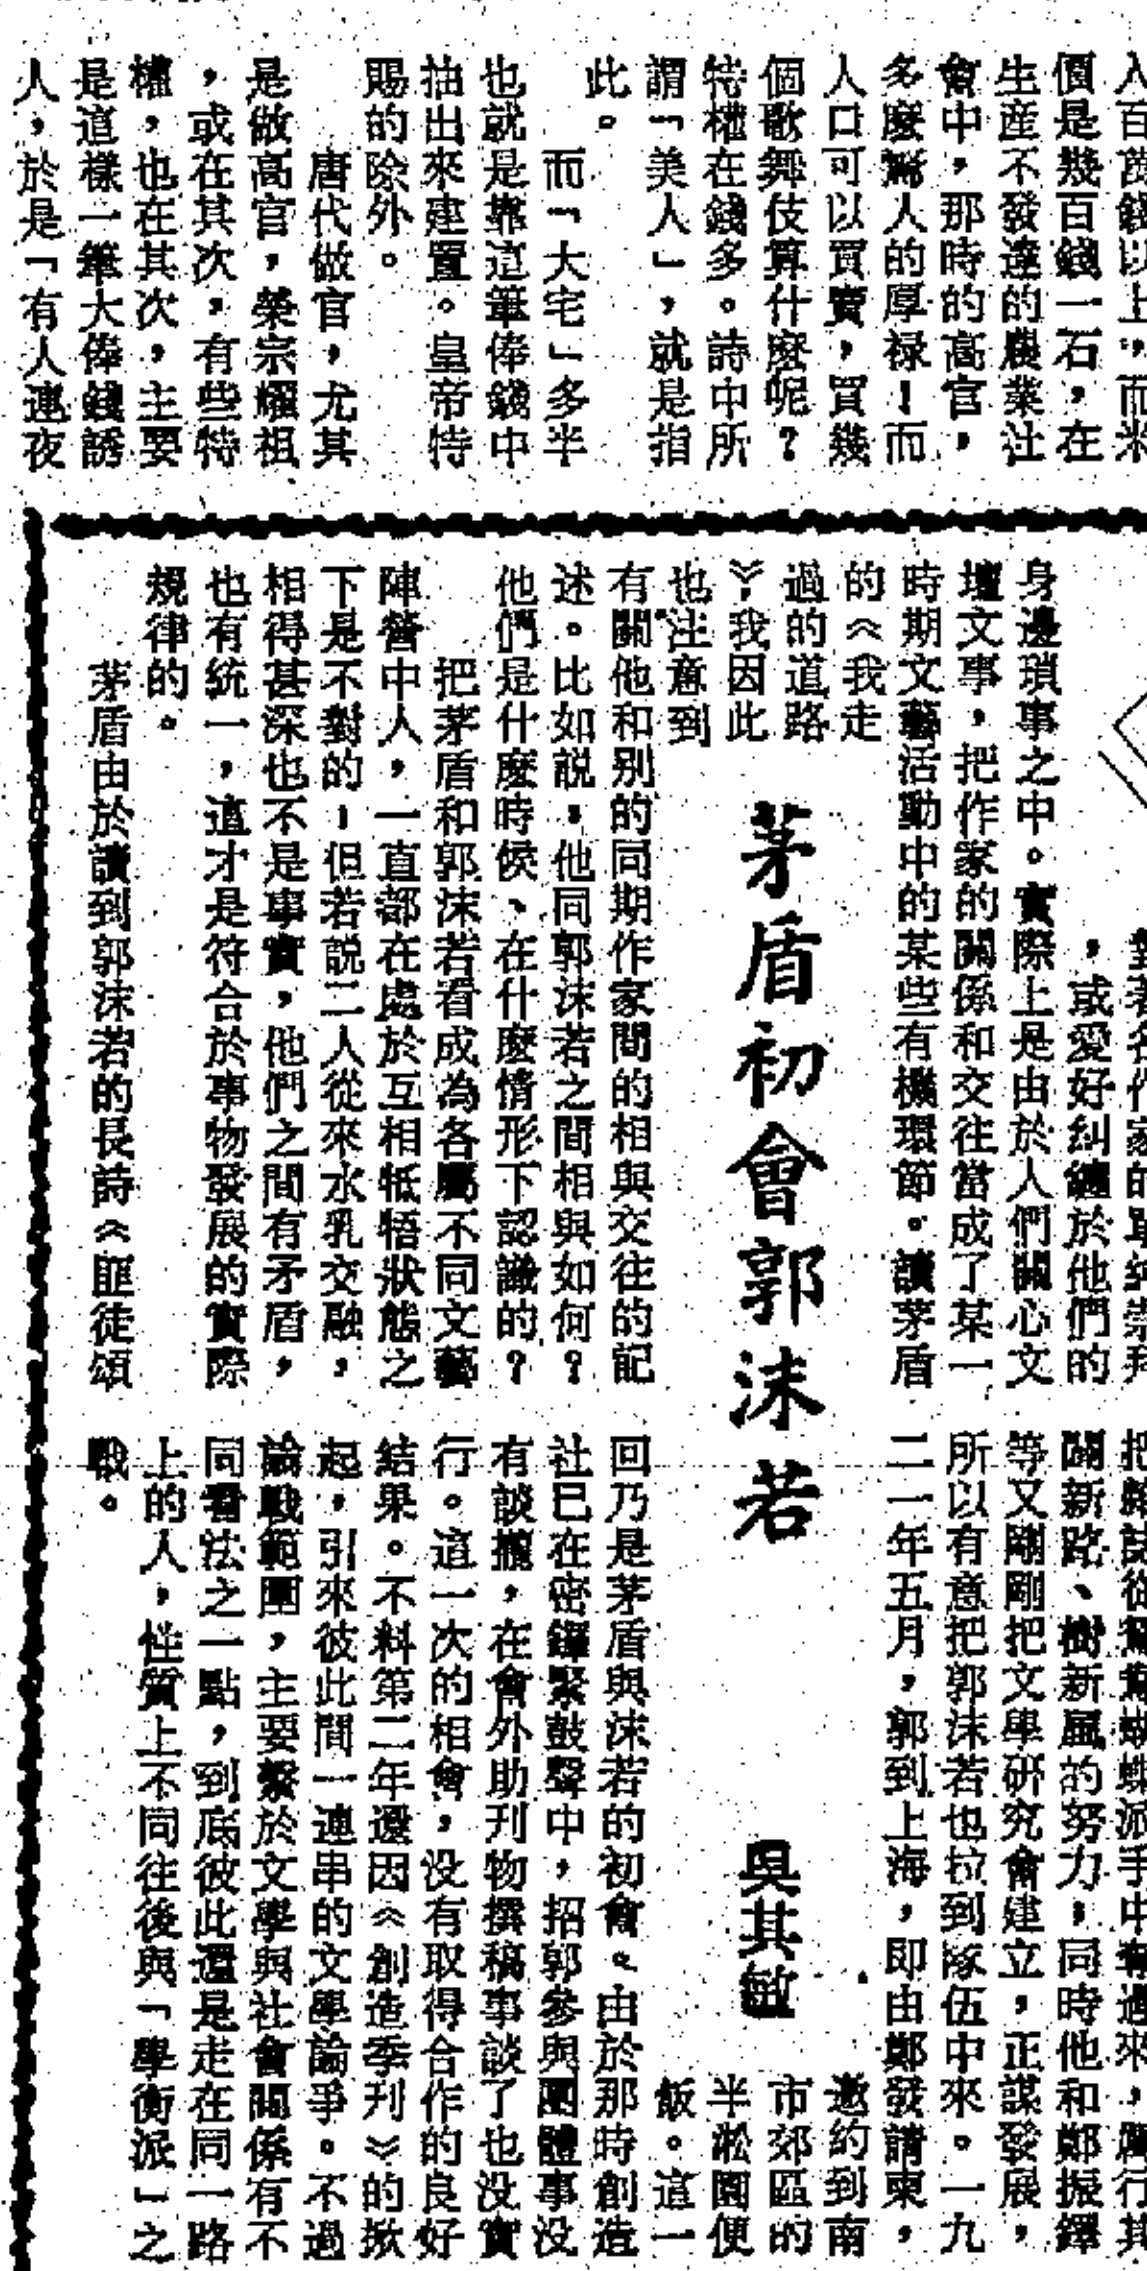 入百萬錢以上,而米
價是幾百錢一石,在
生産不發達的農業社
會中,那時的高官,
多麽驚人的厚禄!而
人口可以買賣,買幾
個歌舞伎算什麽呢?
特權在錢多。詩中所
謂「美人」,就是指
此。
而「大宅」多半
也就是靠這筆俸錢中
抽出來建置。皇帝特
賜的除外。
唐代做官,尤其
是做高官,榮宗耀祖
,或在其次,有些特
權,也在其次,主要
是這樣一筆大俸錢誘
人,於是「有人連夜
茅盾初會郭沫若
吳其敏
對著名作家的單純崇拜
,或愛好糾纏於他們的
身邊瑣事之中。實際上是由於人們關心文
壇文事,把作家的關係和交往當成了某一
時期文藝活動中的某些有機環節。讀茅盾
的《我走
過的道路
》,我因此
也注意到
有關他和别的同期作家間的相與交往的記
述。比如説,他同郭沫若之間相與如何?
他們是什麽時候、在什麽情形下認識的?
把茅盾和郭沫若看成為各屬不同文藝
陣營中人,一直都在處於互相牴牾狀態之
下是不對的;但若説二人從來水乳交融,
相得甚深也不是事實,他們之間有矛盾,
也有統一,這才是符合於事物發展的實際
規律的。
茅盾由於讀到郭沫若的長詩《匪徒頌
把雜誌從鴛鴦蝴蝶派手中奪過來,厲行其
闢新路、樹新風的努力;同時他和鄭振鐸
等又剛剛把文學研究會建立,正謀發展,
所以有意把郭沫若也拉到隊伍中來。一九
二一年五月,郭到上海,即由鄭發請柬,
邀約到南
市郊區的
半淞園便
飯。這一
回乃是茅盾與沫若的初會。由於那時創造
社已在密鑼緊鼓聲中,招郭參與團體事没
有談攏,在會外助刊物撰稿事談了也没實
行。這一次的相會,没有取得合作的良好
結果。不料第二年還因《創造季刊》的掀
起,引來彼此間一連串的文學論爭。不過
論戰範圍,主要繫於文學與社會關係有不
同看法之一點,到底彼此還是走在同一路
上的人,性質上不同往後與「學衡派」之
戰。